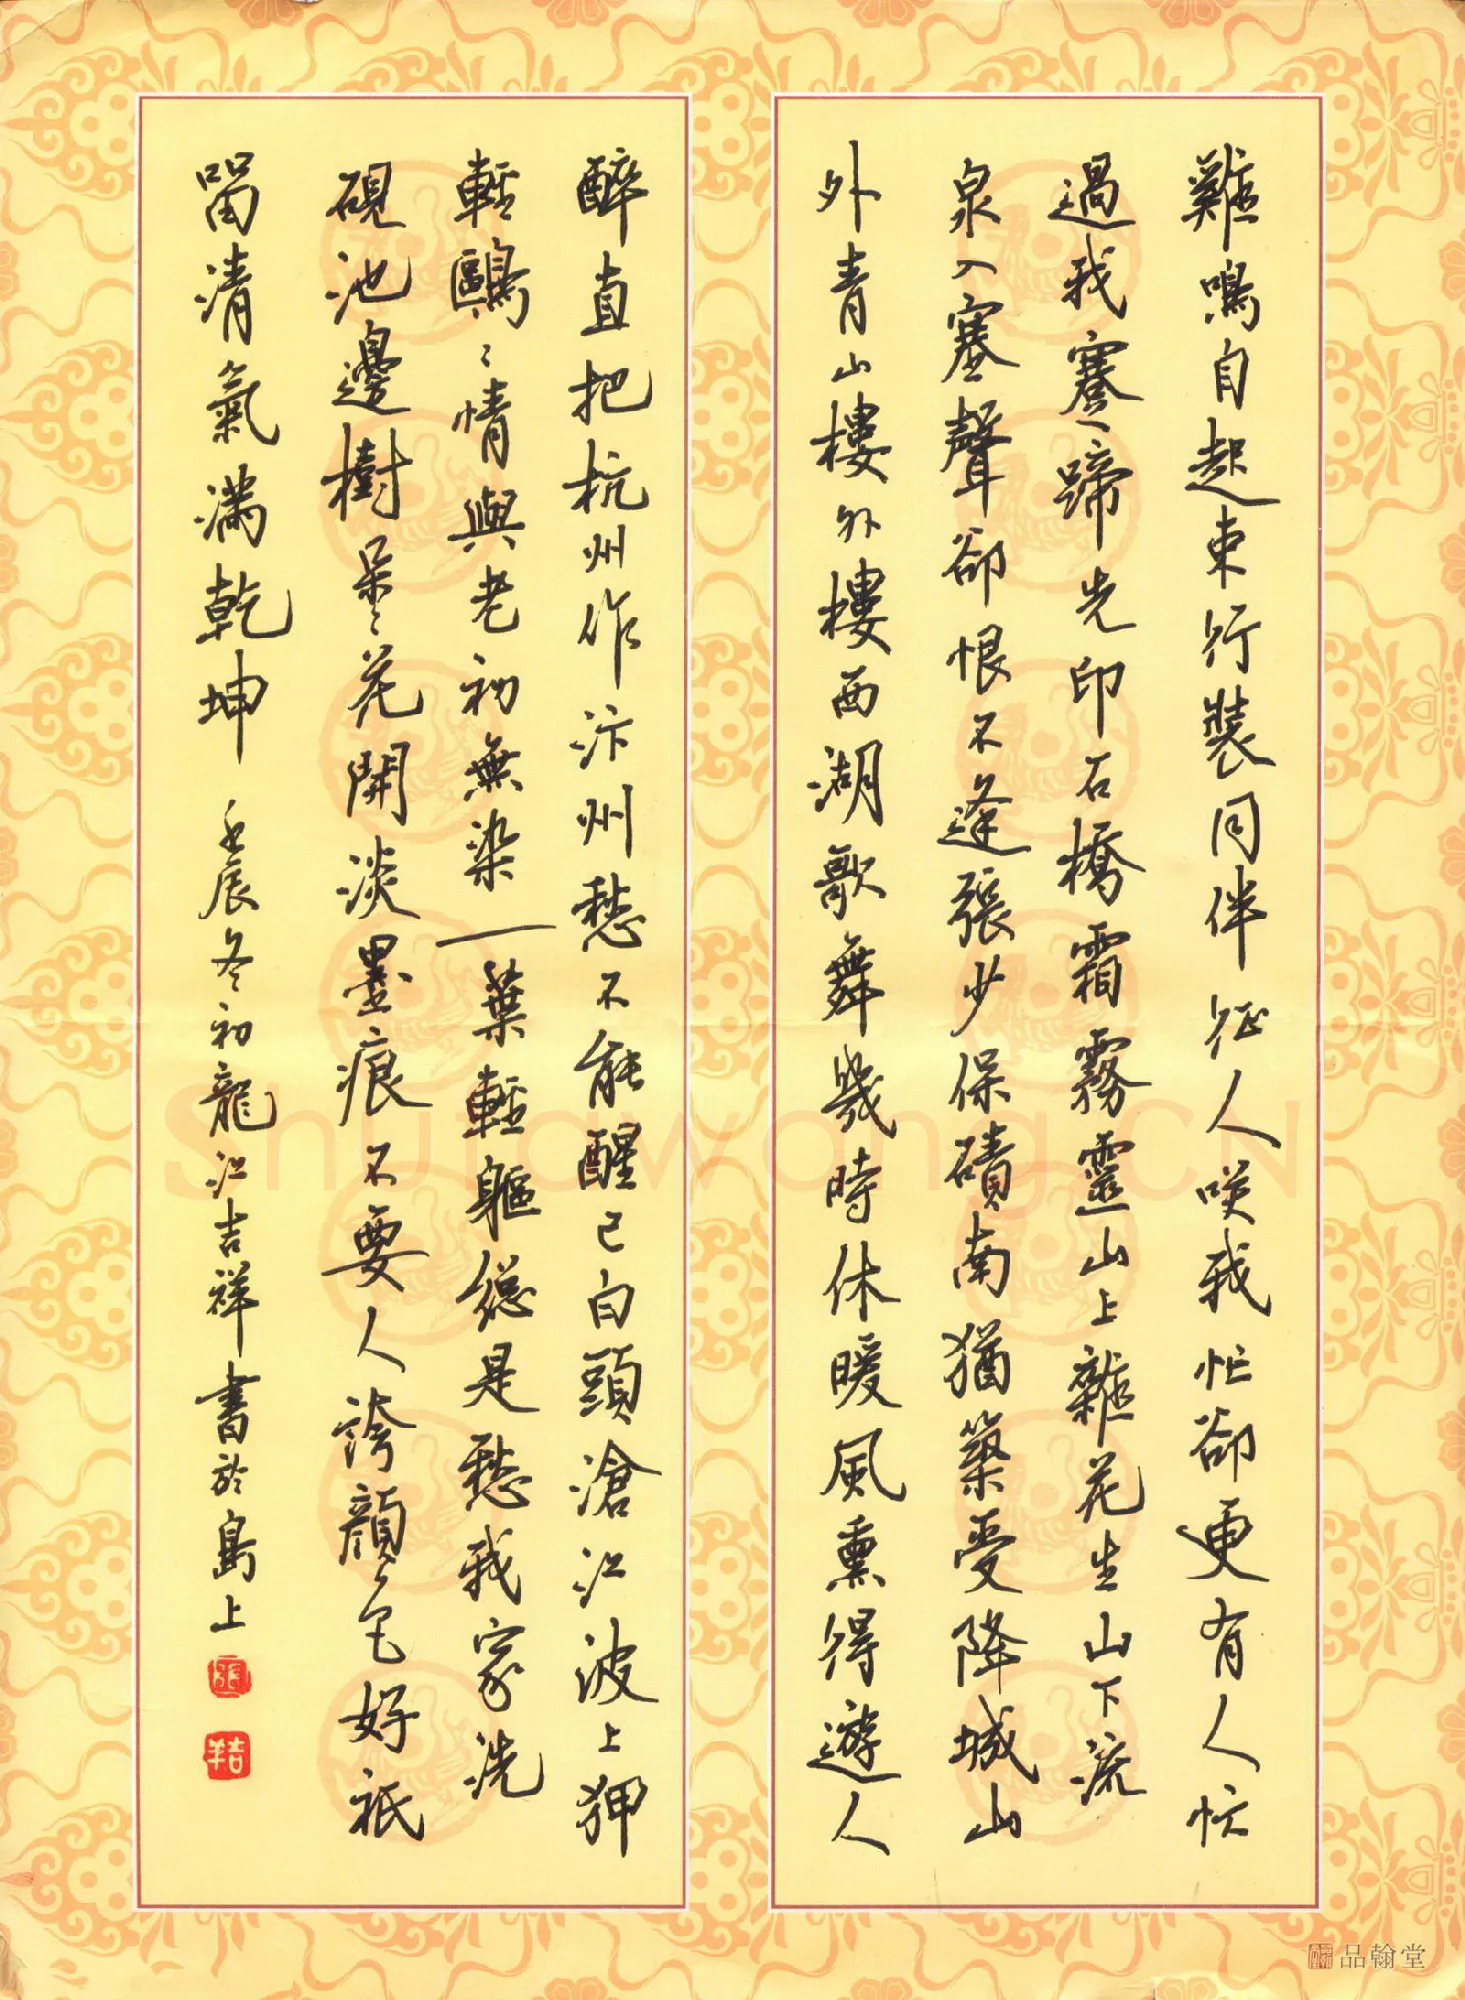 雞鳴自起束行裝同伴征人咲我忙卻更有人忙
過我蹇蹄先印石橋霜霧靈山上雜花生山下流
泉入塞聲卻恨不逢張少保磧南猶築受降城山
外青山樓外樓西湖歌舞幾時休暖風熏得遊人
醉直把杭州作汴州愁不能醒已白頭滄江波上狎
輕鷗鷗情與老初無染一葉輕軀總是愁我家洗
硯池邊樹朵朵花開淡墨痕不要人誇顏色好祇
留清氣滿乾坤 壬辰冬初龍江吉祥書於島上
張
吉羊
Shufawang.CN
品翰堂